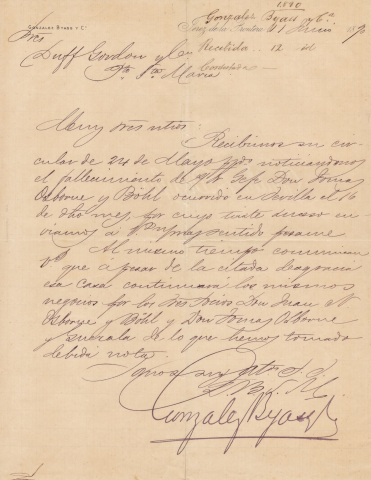 1890
Gonzalez Byass y Cª
GONZALEZ BYASS Y Cª
Jerez de la Frontera 11 Junio 1890
Sres
Recibida 12 id
Duff Gordon y Cia
Contestada —
Pto Sta Maria
Muy Sres ntros:
Recibimos su cir-
cular de 24 de Mayo ppdo noticiandonos
el fallecimiento de su Gefe Don Tomas
Osborne y Böhl ocurrido en Sevilla el 16
de dho mes, por cuyo triste suceso en-
viamos á Vds muy sentido pesame
Al mismo tiempo comunican
Vds que á pesar de la citada desgracia
esa casa continuará los mismos
negocios por los Sres Socios Don Juan N.
Osborne y Böhl y Don Tomas Osborne
y Guezala de lo que hemos tomado
debida nota.
Somos suyos attos S. S.
Q. B. S. M.
Gonzalez Byass y Cª